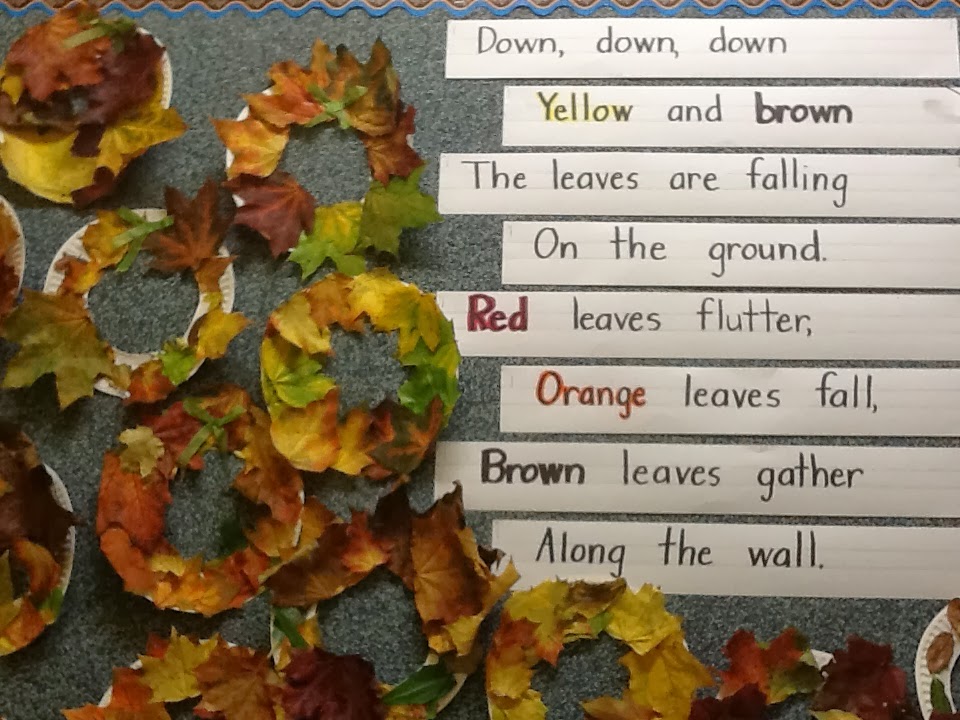 Down, down, down
Yellow and brown
The leaves are falling
On the ground.
Red leaves flutter,
Orange leaves fall,
Brown leaves gather
Along the wall.